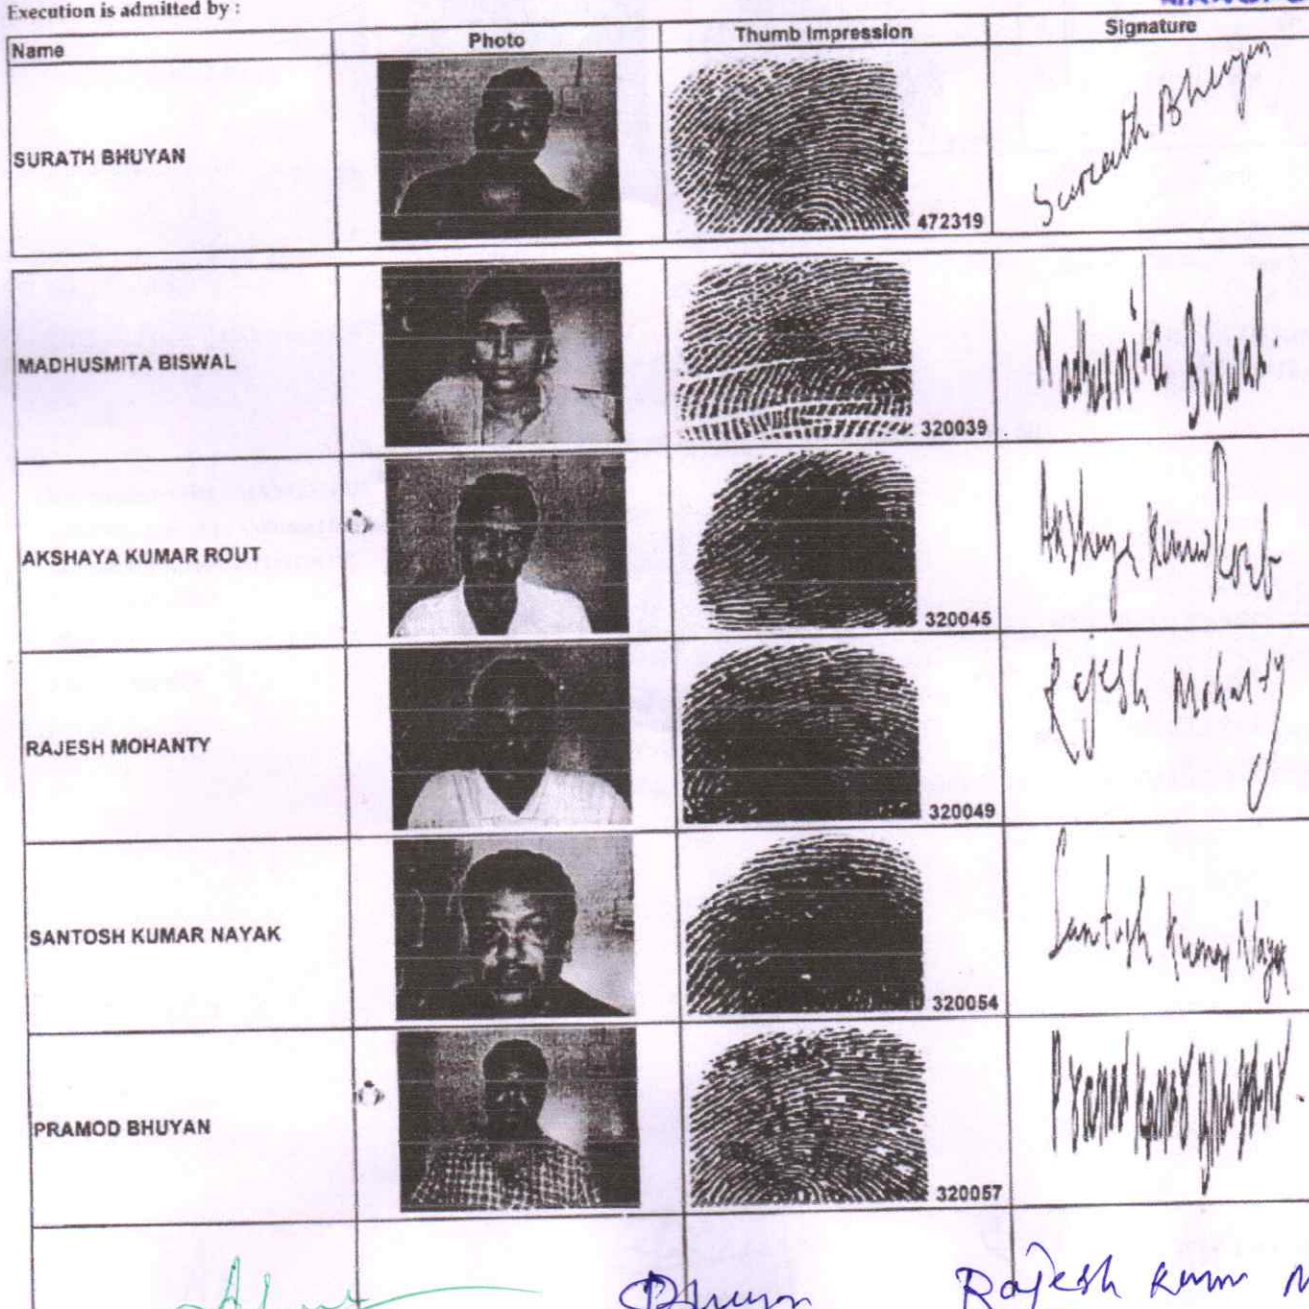 Execution is admitted by :
Name Photo Thumb Impression Signature
SURATH BHUYAN 472319 Surath Bhuyan
MADHUSMITA BISWAL 320039 Madhusmita Biswal
AKSHAYA KUMAR ROUT 320045 Akshaya Kumar Rout
RAJESH MOHANTY 320049 Rajesh Mohanty
SANTOSH KUMAR NAYAK 320054 Santosh Kumar Nayak
PRAMOD BHUYAN 320057 Pramod Kumar Bhuyan
Rajesh Kumar